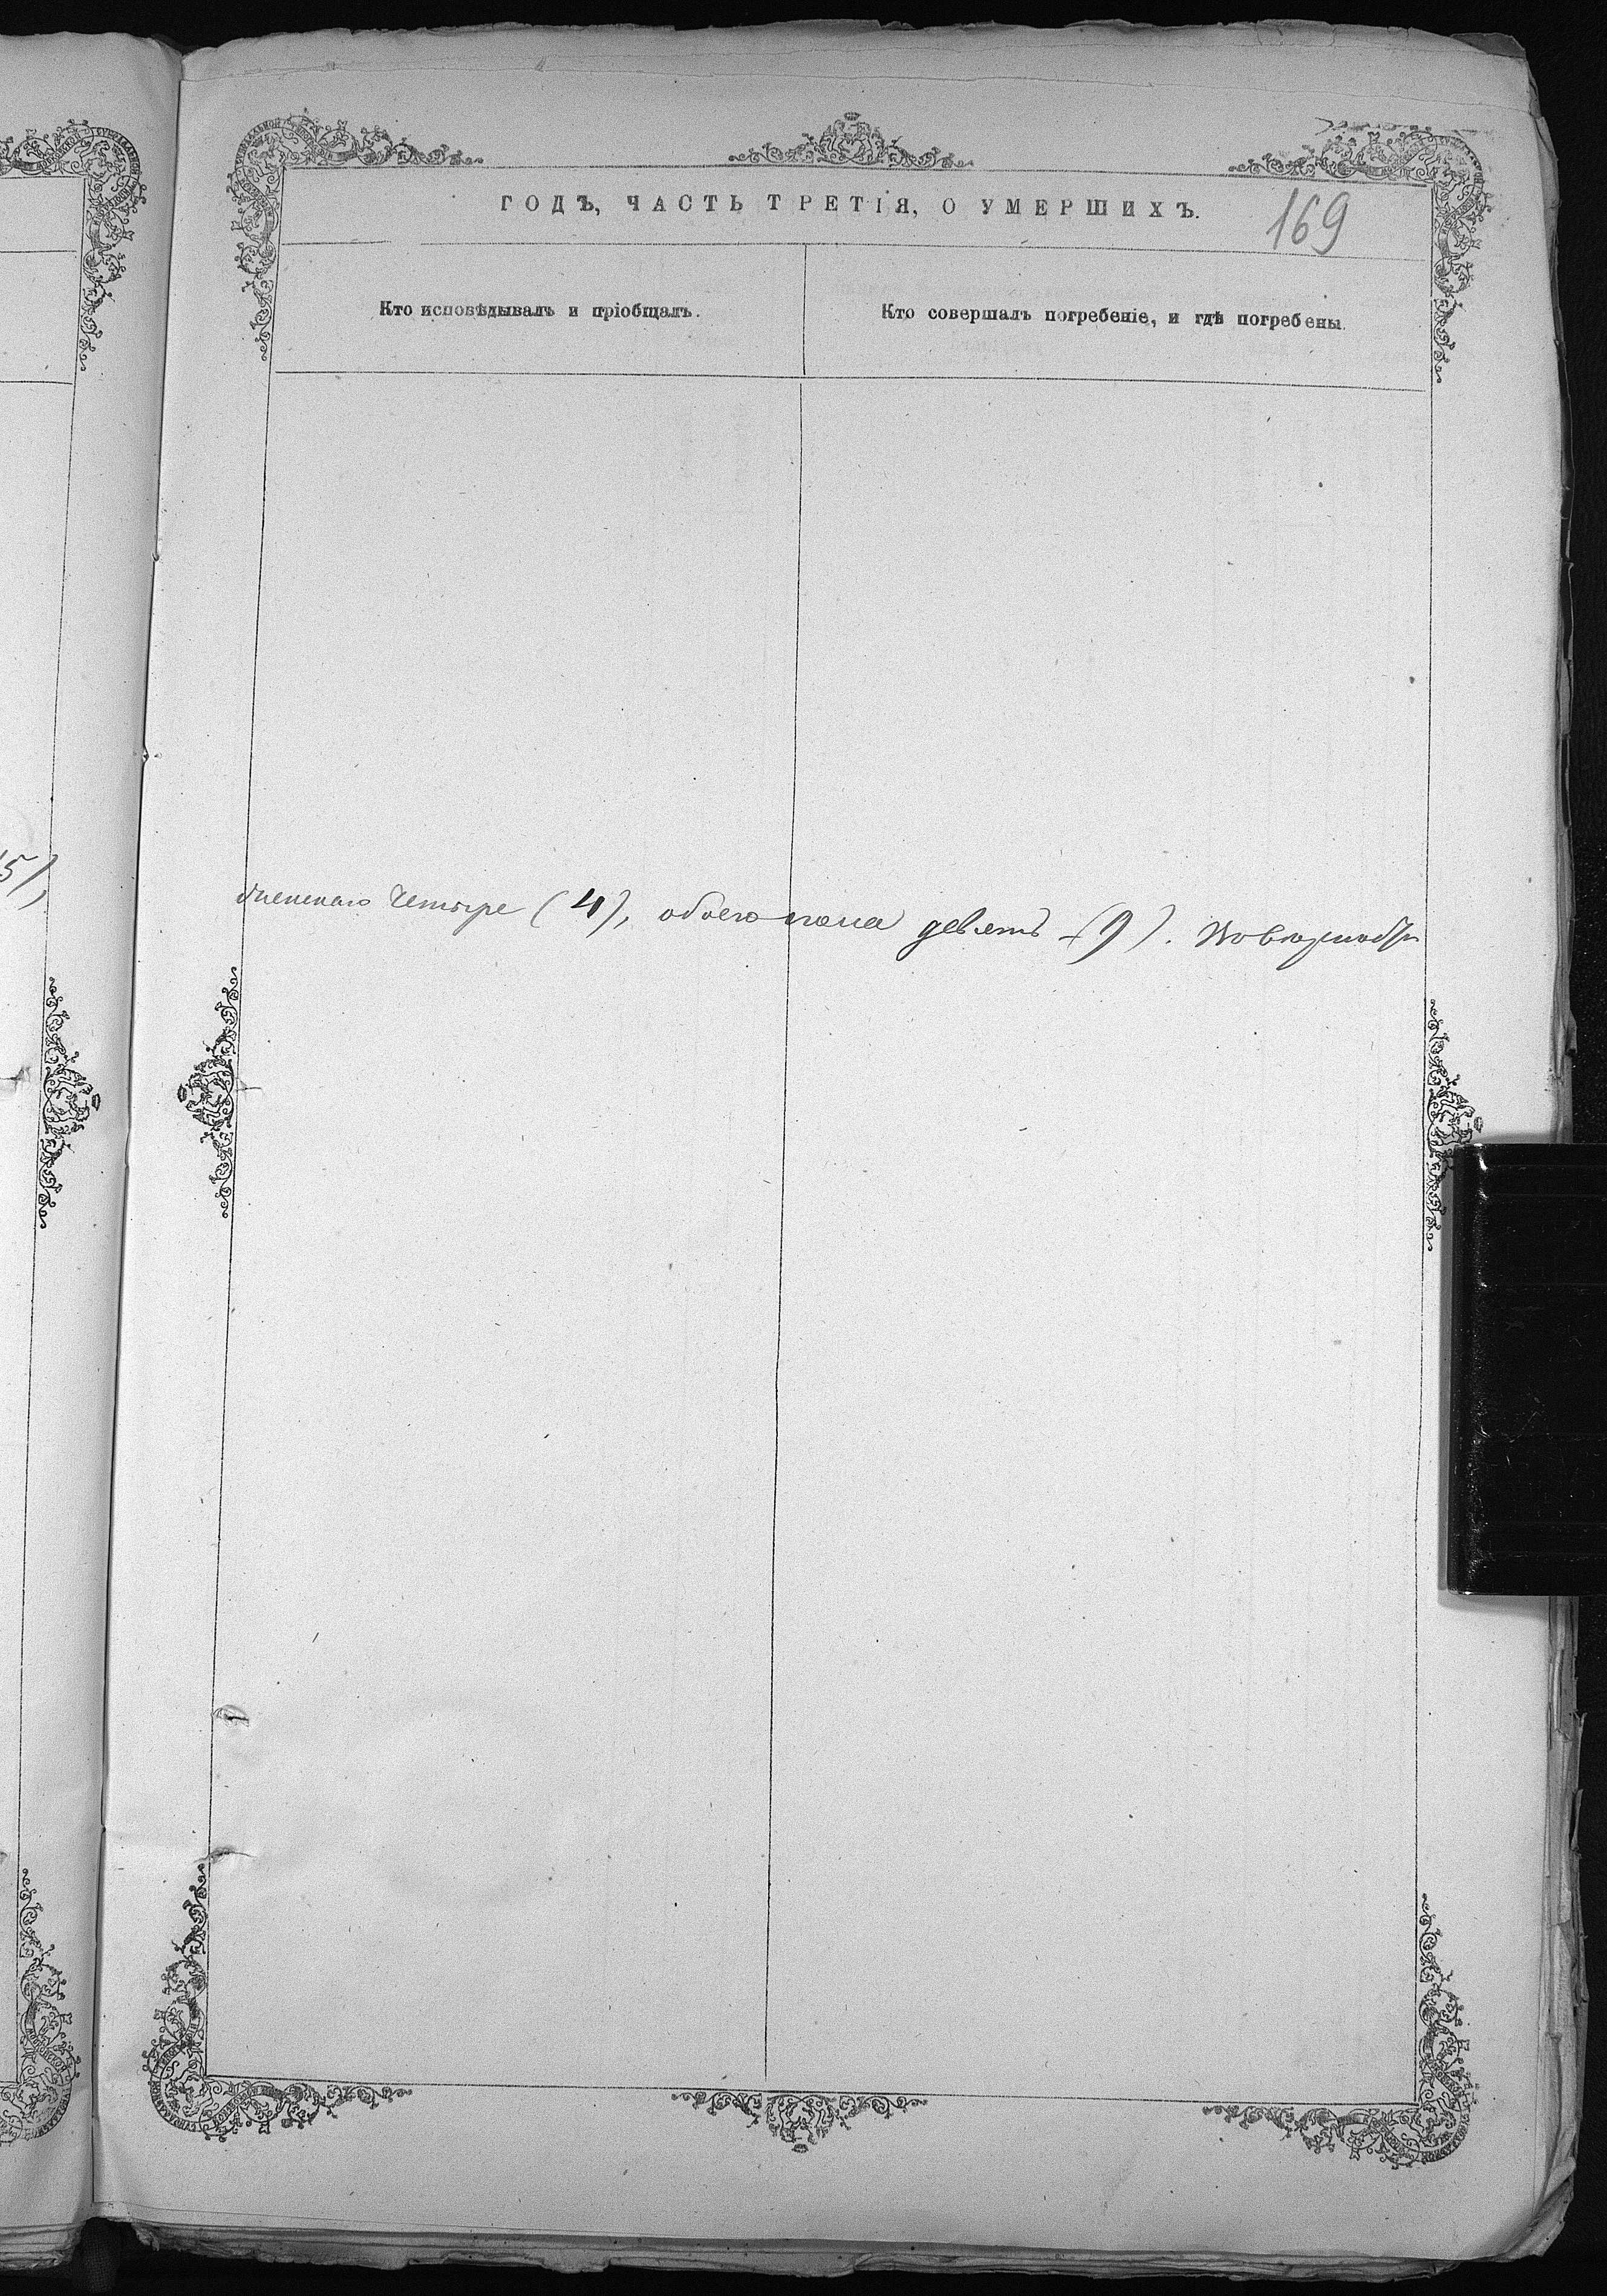 5),
ГОДЪ, ЧАСТЬ ТРЕТІЯ, О УМЕРШИХЪ.
169
Кто исповѣдывалъ и пріобщалъ.
Кто совершалъ погребеніе, и гдѣ погребены.
женскаго четыре (4), обоего пола девять (9).